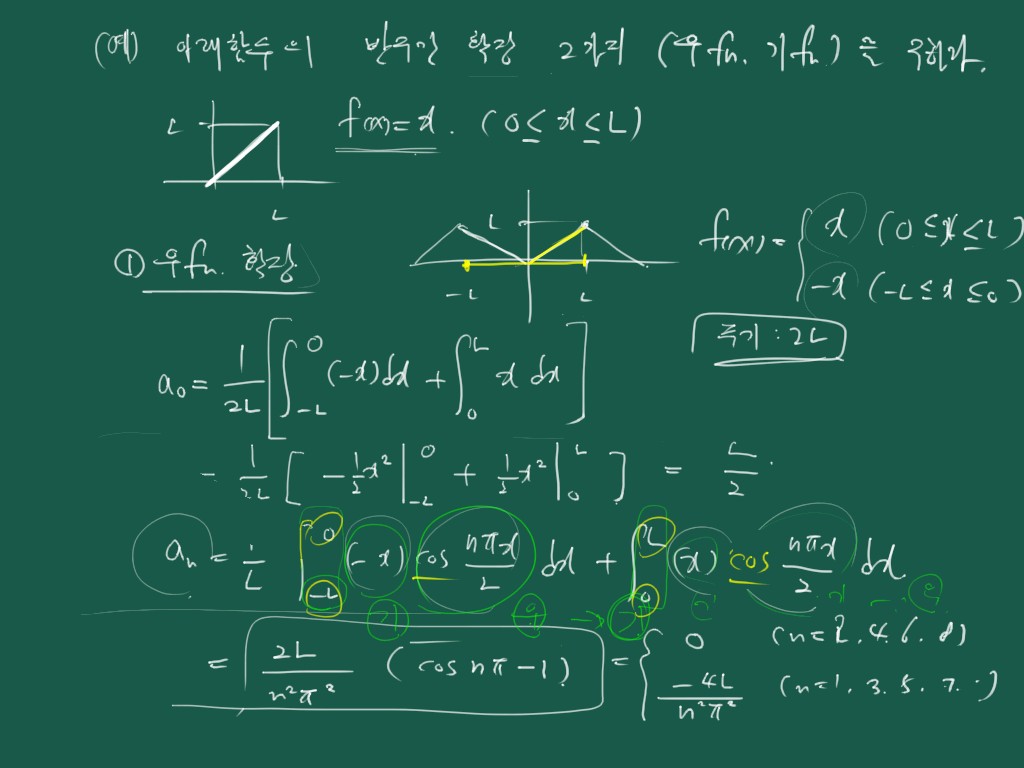 (예) 아래함수의 반주기 확장 2가지 (우fn. 기fn.)를 구하라.
L
f(x)=x. (0≤x≤L)
L
① 우fn. 확장
L
-L L
f(x)= { x (0≤x≤L)
-x (-L≤x≤0)
주기 : 2L
a₀ = 1/2L [ ∫_{-L}^{0} (-x)dx + ∫_{0}^{L} x dx ]
= 1/2L [ -1/2 x² |_{-L}^{0} + 1/2 x² |_{0}^{L} ] = L/2.
aₙ = 1/L ∫_{-L}^{0} (-x) cos nπx/L dx + ∫_{0}^{L} (x) cos nπx/2 dx.
= 2L/n²π² (cos nπ -1) = { 0 (n=2.4.6.8)
-4L/n²π² (n=1.3.5.7..)